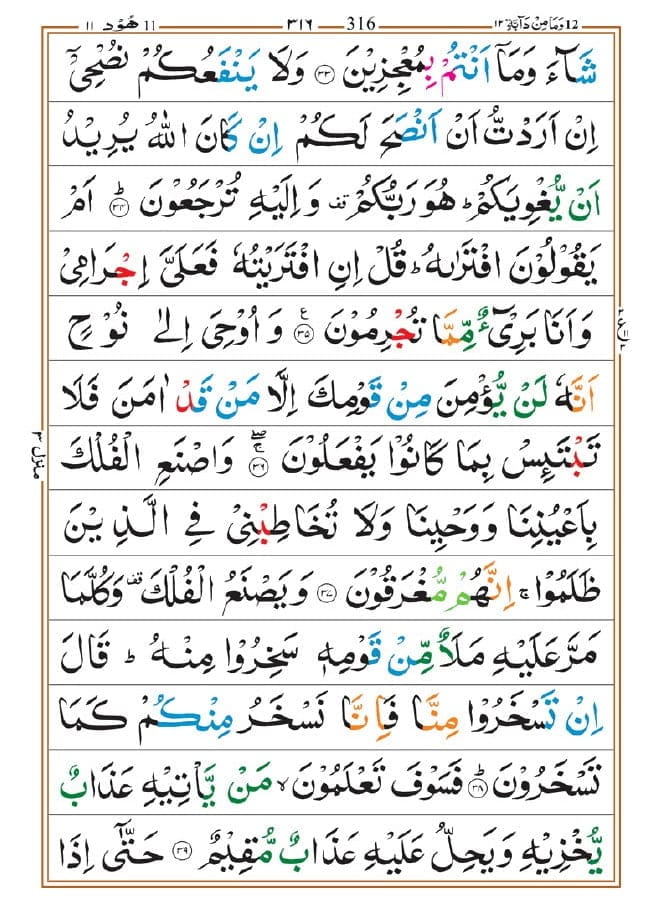 12 وَمَا مِنْ دَآبَّةٍ ١٢ 316 ٣١٦ 11 هُوْد ١١
شَآءَ وَمَآ اَنْتُمْ بِمُعْجِزِيْنَ ﴿۳۳﴾ وَلَا يَنْفَعُكُمْ نُصْحِیْۤ
اِنْ اَرَدْتُّ اَنْ اَنْصَحَ لَكُمْ اِنْ كَانَ اللّٰهُ يُرِيْدُ
اَنْ يُّغْوِيَكُمْ ؕ هُوَ رَبُّكُمْ قف وَ اِلَيْهِ تُرْجَعُوْنَ ﴿۳۴﴾ ؕ اَمْ
يَقُوْلُوْنَ افْتَرٰىهُ ؕ قُلْ اِنِ افْتَرَيْتُهٗ فَعَلَیَّ اِجْرَامِیْ
وَ اَنَا بَرِیْٓءٌ مِّمَّا تُجْرِمُوْنَ ﴿۳۵﴾ ع وَ اُوْحِیَ اِلٰی نُوْحٍ
اَنَّهٗ لَنْ يُّؤْمِنَ مِنْ قَوْمِكَ اِلَّا مَنْ قَدْ اٰمَنَ فَلَا
تَبْتَئِسْ بِمَا كَانُوْا يَفْعَلُوْنَ ﴿۳۶﴾ ۚۖ وَ اصْنَعِ الْفُلْكَ
منزل ۳
بِاَعْيُنِنَا وَوَحْيِنَا وَلَا تُخَاطِبْنِیْ فِی الَّذِيْنَ
ظَلَمُوْا ۚ اِنَّهُمْ مُّغْرَقُوْنَ ﴿۳۷﴾ وَيَصْنَعُ الْفُلْكَ قف وَكُلَّمَا
مَرَّ عَلَيْهِ مَلَاٌ مِّنْ قَوْمِهٖ سَخِرُوْا مِنْهُ ؕ قَالَ
اِنْ تَسْخَرُوْا مِنَّا فَاِنَّا نَسْخَرُ مِنْكُمْ كَمَا
تَسْخَرُوْنَ ﴿۳۸﴾ ؕ فَسَوْفَ تَعْلَمُوْنَ ۙ مَنْ يَّاْتِيْهِ عَذَابٌ
يُّخْزِيْهِ وَيَحِلُّ عَلَيْهِ عَذَابٌ مُّقِيْمٌ ﴿۳۹﴾ حَتّٰۤی اِذَا